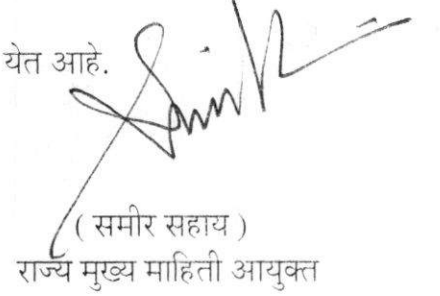 येत आहे.
( समीर सहाय )
राज्य मुख्य माहिती आयुक्त